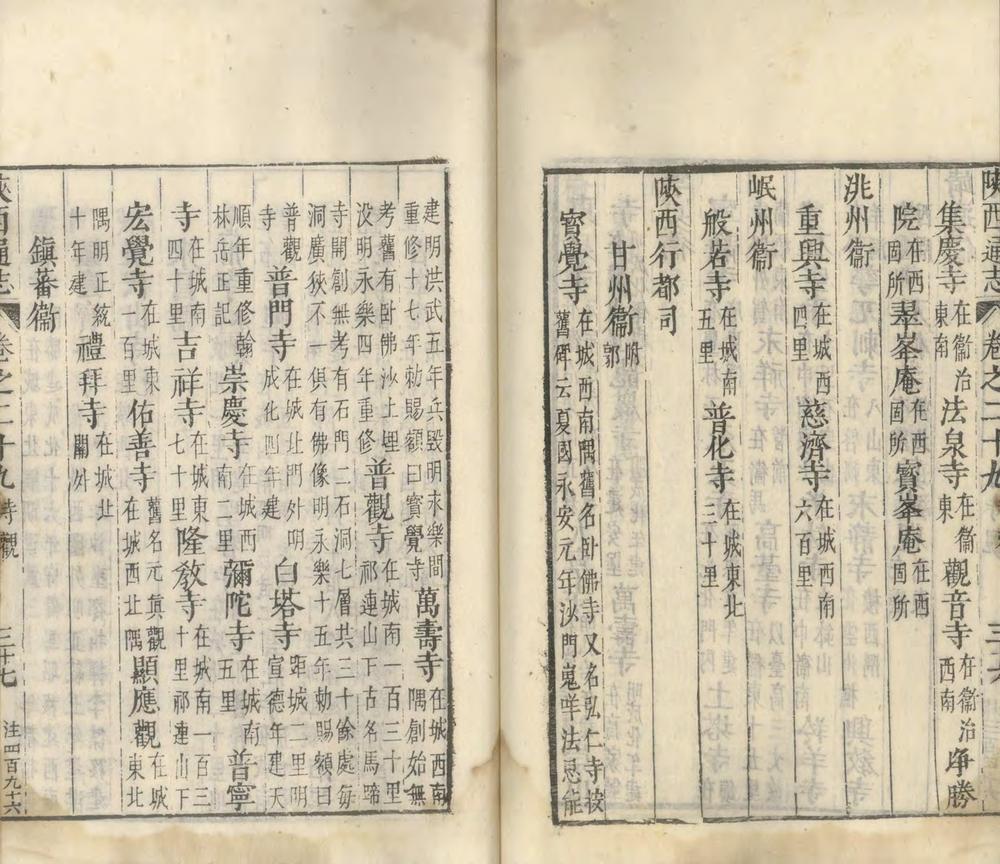 陝西通志 卷之二十九 寺觀 三十六
集慶寺在衞治東南 法泉寺在衞東 觀音寺在衞治西南 淨勝
院在西固所 翠峯庵在西固所 寳峯庵在西固所
洮州衞
重興寺在城西四里 慈濟寺在城西南六百里
岷州衞
般若寺在城南五里 普化寺在城東北三十里
陝西行都司
甘州衞附郭
寳覺寺在城西南隅舊名卧佛寺又名弘仁寺按舊碑云夏國永安元年沙門嵬咩法忌能
建明洪武五年兵毀明永樂間重修十七年勅賜額曰寳覺寺 萬壽寺在城西南隅創始無
考舊有卧佛沙土埋没明永樂四年重修 普觀寺在城南一百三十里祁連山下古名馬蹄
寺開創無考有石門二石洞七層共三十餘處每洞廣狹不一俱有佛像明永樂十五年勅賜額曰
普觀寺 普門寺在城北門外明成化四年建 白塔寺距城二里明宣德年建天
順年重修翰林岳正記 崇慶寺在城西南二里 彌陀寺在城南五里 普寧
寺在城南四十里 吉祥寺在城東七十里 隆教寺在城南一百三十里祁連山下
宏覺寺在城東一百里 佑善寺舊名元眞觀在城西北隅 顯應觀在城東北
隅明正統十年建 禮拜寺在城北關外
鎮蕃衞
陝西通志 卷之二十九 寺觀 三十七 注四百九十六